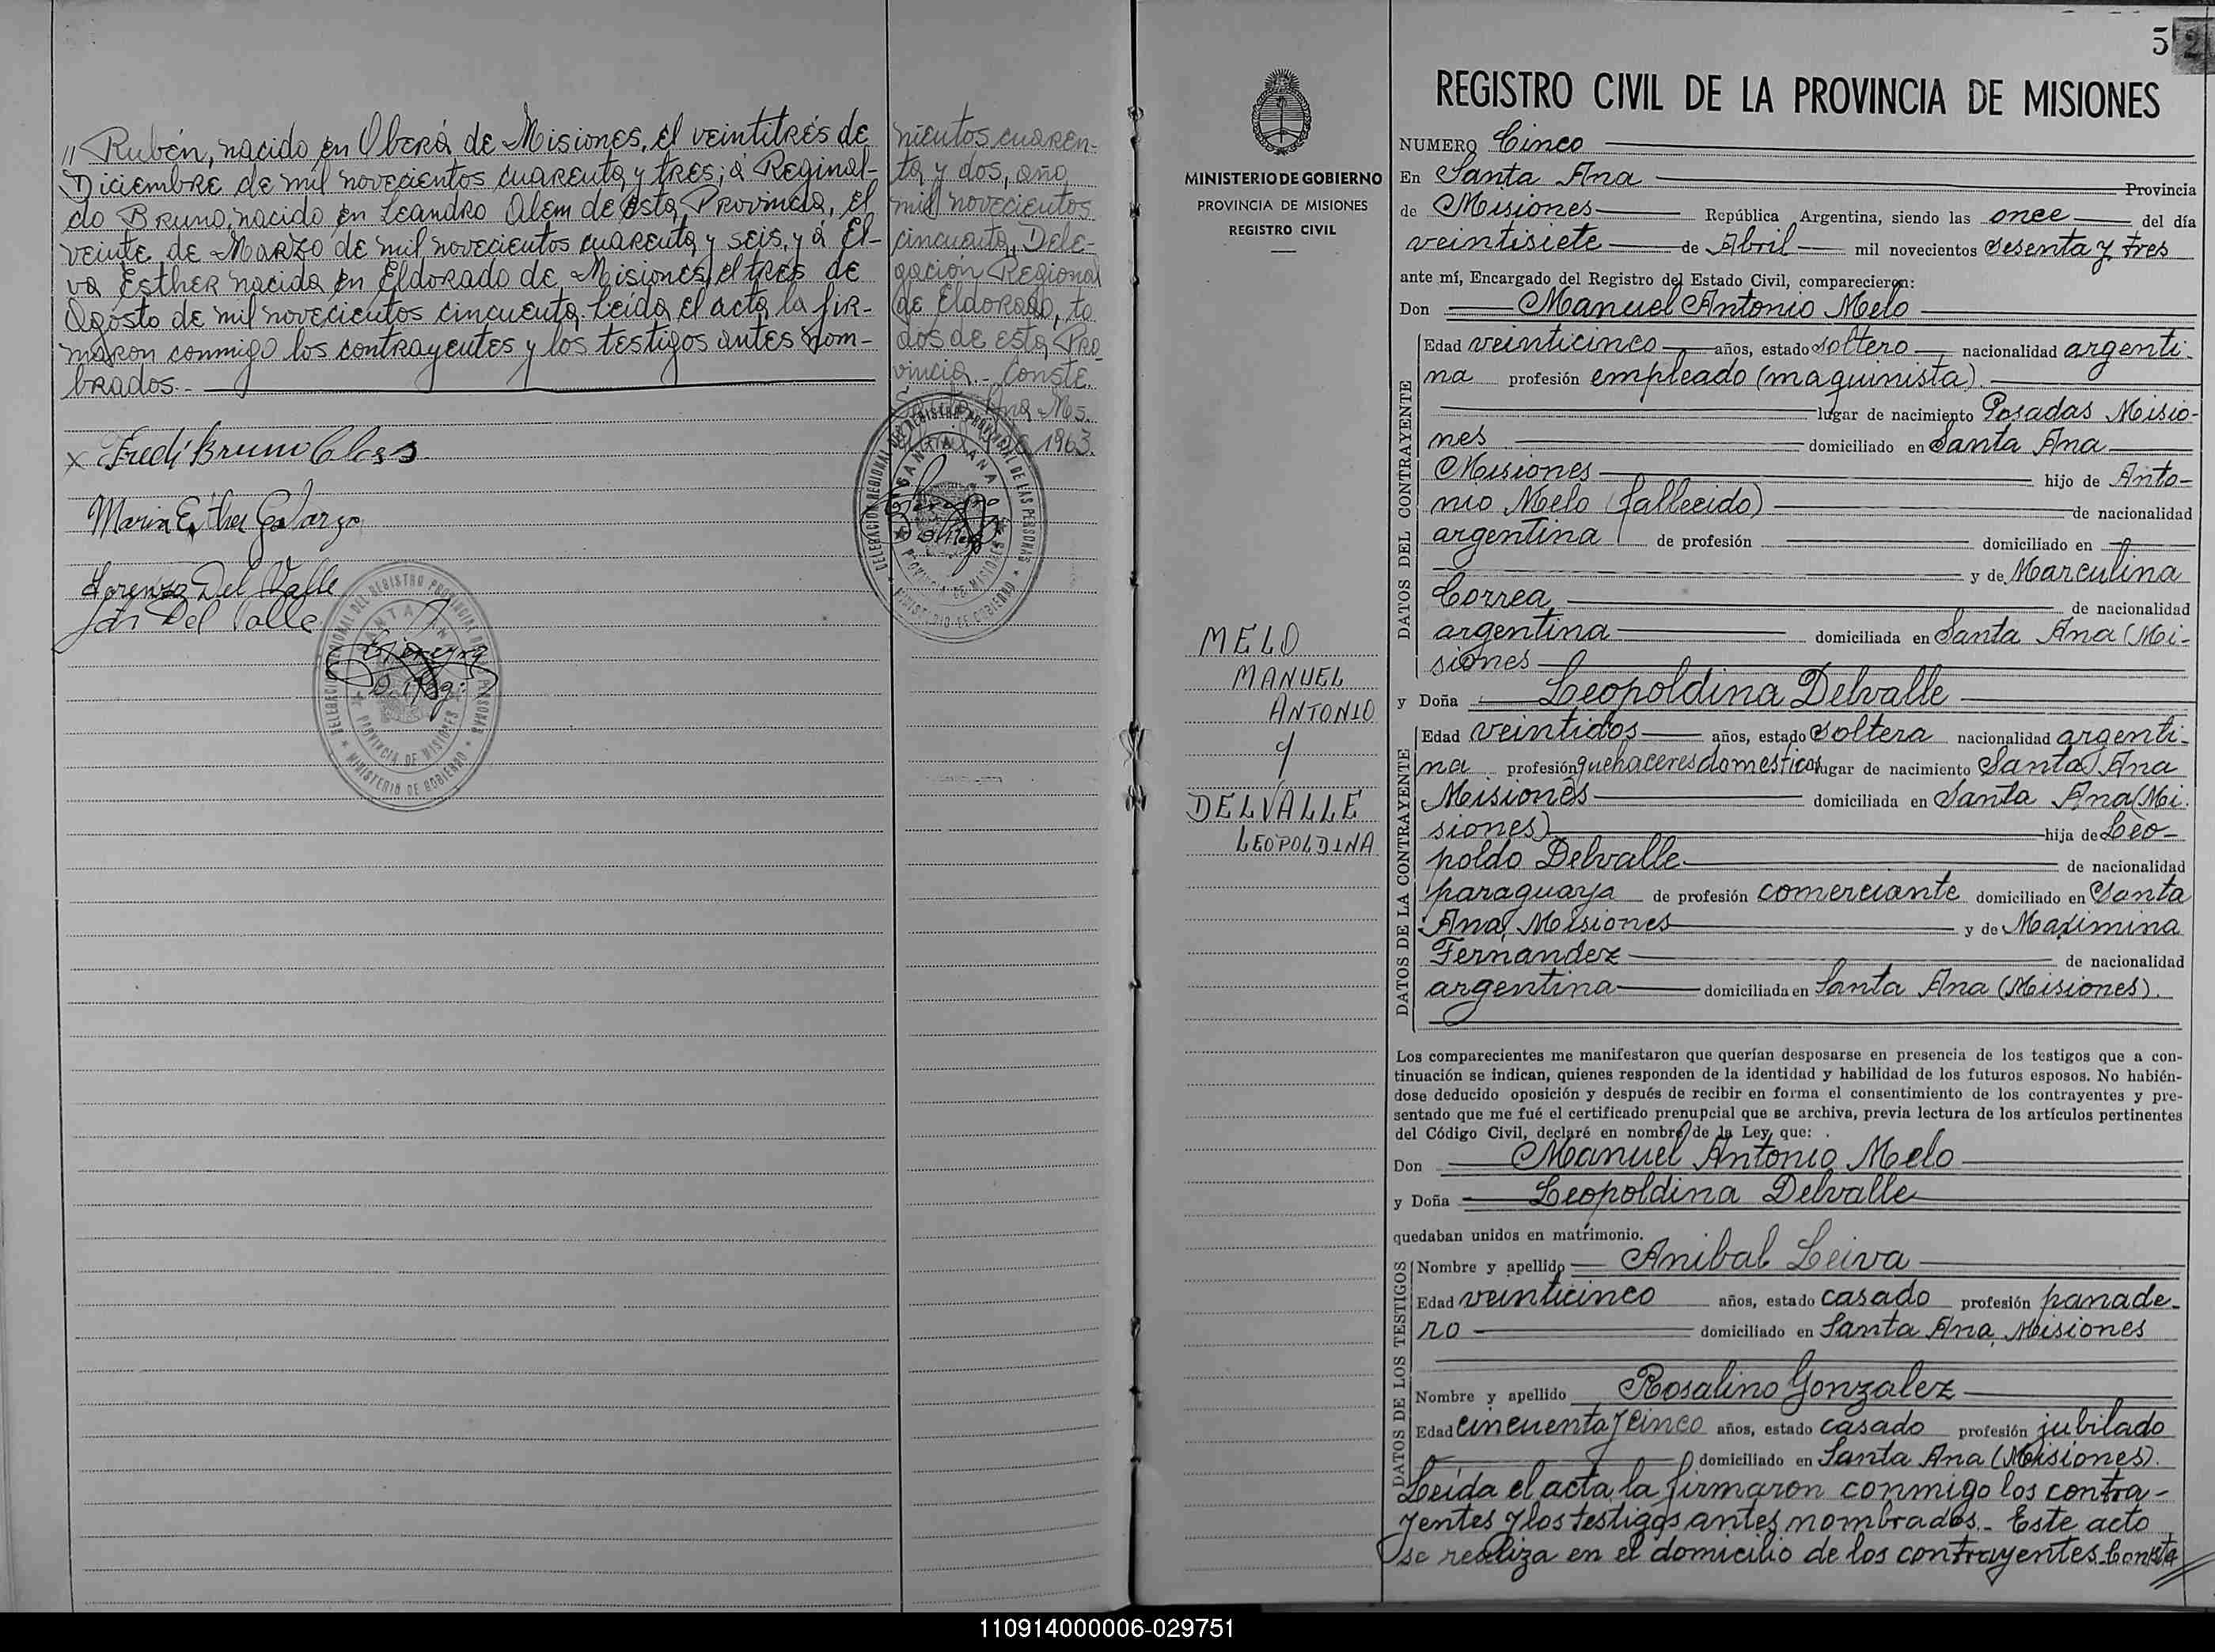 " Rubén, nacido en Oberá de Misiones, el veintitrés de
Diciembre de mil novecientos cuarenta y tres; a Reginal-
do Bruno, nacido en Leandro Alem de esta Provincia, el
veinte de Marzo de mil novecientos cuarenta y seis, y a El-
va Esther nacida en Eldorado de Misiones, el tres de
Agosto de mil novecientos cincuenta. Leída el acta la fir-
maron conmigo los contrayentes y los testigos antes nom-
brados.-
x Fredi Bruno
Maria Esther Galarza
Lorenzo Del Valle
Del Valle
DELEGACION REGIONAL DEL REGISTRO PROVINCIAL DE LAS PERSONAS
SANTA ANA
PROVINCIA DE MISIONES
MINISTERIO DE GOBIERNO
nientos cuaren-
ta y dos, año
mil novecientos
cincuenta, Dele-
gación Regional
de Eldorado, to
dos de esta Pro
vincia.- Conste.
Santa Ana Ms.
1963.
DELEGACION REGIONAL DEL REGISTRO PROVINCIAL DE LAS PERSONAS
SANTA ANA
PROVINCIA DE MISIONES
MINISTERIO DE GOBIERNO
5 2
MINISTERIO DE GOBIERNO
PROVINCIA DE MISIONES
REGISTRO CIVIL
MELO
MANUEL
ANTONIO
y
DELVALLE
LEOPOLDINA
REGISTRO CIVIL DE LA PROVINCIA DE MISIONES
NUMERO Cinco
En Santa Ana Provincia
de Misiones República Argentina, siendo las once del día
veintisiete de Abril mil novecientos sesenta y tres
ante mí, Encargado del Registro del Estado Civil, comparecieron:
Don Manuel Antonio Melo
DATOS DEL CONTRAYENTE
Edad veinticinco años, estado soltero, nacionalidad argenti-
na profesión empleado (maquinista).
lugar de nacimiento Posadas Misio-
nes domiciliado en Santa Ana
Misiones hijo de Anto-
nio Melo (fallecido) de nacionalidad
argentina de profesión domiciliado en
y de Marculina
Correa de nacionalidad
argentina domiciliada en Santa Ana (Mi-
siones
y Doña Leopoldina Delvalle
DATOS DE LA CONTRAYENTE
Edad veintidos años, estado soltera nacionalidad argenti-
na profesión quehaceres domesticos lugar de nacimiento Santa Ana
Misiones domiciliada en Santa Ana (Mi-
siones) hija de Leo-
poldo Delvalle de nacionalidad
paraguaya de profesión comerciante domiciliado en Santa
Ana, Misiones y de Maximina
Fernandez de nacionalidad
argentina domiciliada en Santa Ana (Misiones).
Los comparecientes me manifestaron que querían desposarse en presencia de los testigos que a con-
tinuación se indican, quienes responden de la identidad y habilidad de los futuros esposos. No habién-
dose deducido oposición y después de recibir en forma el consentimiento de los contrayentes y pre-
sentado que me fué el certificado prenupcial que se archiva, previa lectura de los artículos pertinentes
del Código Civil, declaré en nombre de la Ley que:
Don Manuel Antonio Melo
y Doña Leopoldina Delvalle
quedaban unidos en matrimonio.
DATOS DE LOS TESTIGOS
Nombre y apellido Anibal Leiva
Edad veinticinco años, estado casado profesión panade-
ro domiciliado en Santa Ana, Misiones
Nombre y apellido Rosalino Gonzalez
Edad cincuenta y cinco años, estado casado profesión jubilado
domiciliado en Santa Ana (Misiones).
Leída el acta la firmaron conmigo los contra-
yentes y los testigos antes nombrados.- Este acto
se realiza en el domicilio de los contrayentes. Conste
110914000006-029751